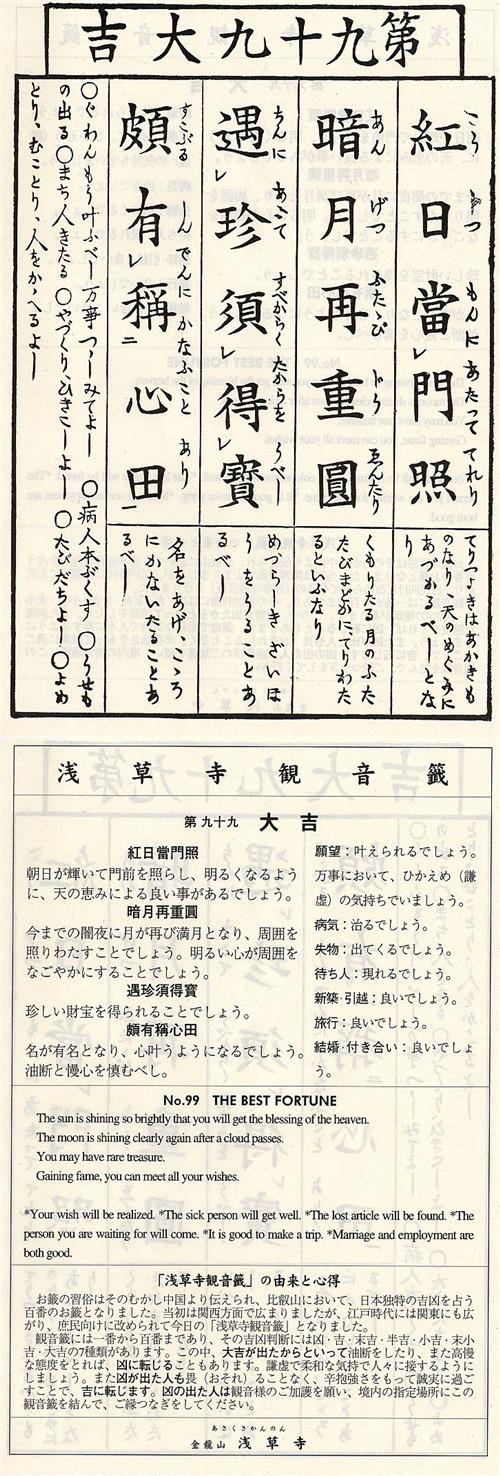 第九十九大吉
紅日當門照
もんに あたつて てれり
のなり、天のめぐみに
あづかるべしとな
り
暗月再重圓
あん げつ ふたゝび ゑんたり
くもりたる月のふた
たびまどかにてりわた
るといふなり
遇珍須得寳
ちんに あふて すべからく たからを うべし
めづらしき ざいほ
うをうることあ
るべし
頗有稱心田
すこぶる しんでんに かなふこと あり
名をあげ、こゝろ
にかないたることあ
るべし
○ぐわんもう叶ふべし 万事つゝしみてよし ○病人本ぷくす ○うせも
の出る○まち人きたる ○やづくり、ひきこしよし ○たびだちよし ○よめ
とり、むことり、人をかゝへるよし
浅草寺観音籤
第九十九 大吉
紅日當門照
朝日が輝いて門前を照らし、明るくなるよう
に、天の恵みによる良い事があるでしょう。
暗月再重圓
今までの闇夜に月が再び満月となり、周囲を
照りわたすことでしょう。明るい心が周囲を
なごやかにすることでしょう。
遇珍須得寳
珍しい財宝を得られることでしょう。
頗有稱心田
名が有名となり、心叶うようになるでしょう。
油断と慢心を慎むべし。
願望：叶えられるでしょう。
万事において、ひかえめ（謙
虚）の気持ちでいましょう。
病気：治るでしょう。
失物：出てくるでしょう。
待ち人：現れるでしょう。
新築・引越：良いでしょう。
旅行：良いでしょう。
結婚・付き合い：良いでしょ
う。
No.99 THE BEST FORTUNE
The sun is shining so brightly that you will get the blessing of the heaven.
The moon is shining clearly again after a cloud passes.
You may have rare treasure.
Gaining fame, you can meet all your wishes.
*Your wish will be realized. *The sick person will get well. *The lost article will be found. *The
person you are waiting for will come. *It is good to make a trip. *Marriage and employment are
both good.
「浅草寺観音籤」の由来と心得
お籤の習俗はそのむかし中国より伝えられ、比叡山において、日本独特の吉凶を占う
百番のお籤となりました。当初は関西方面で広まりましたが、江戸時代には関東にも広
がり、庶民向けに改められて今日の「浅草寺観音籤」となりました。
観音籤には一番から百番まであり、その吉凶判断には凶・吉・末吉・半吉・小吉・末小
吉・大吉の7種類があります。この中、大吉が出たからといって油断をしたり、また高慢
な態度をとれば、凶に転じることもあります。謙虚で柔和な気持で人々に接するように
しましょう。また凶が出た人も畏（おそれ）ることなく、辛抱強さをもって誠実に過ご
すことで、吉に転じます。凶の出た人は観音様のご加護を願い、境内の指定場所にこの
観音籤を結んで、ご縁つなぎをしてください。
あさくさかんのん
金龍山 浅草寺